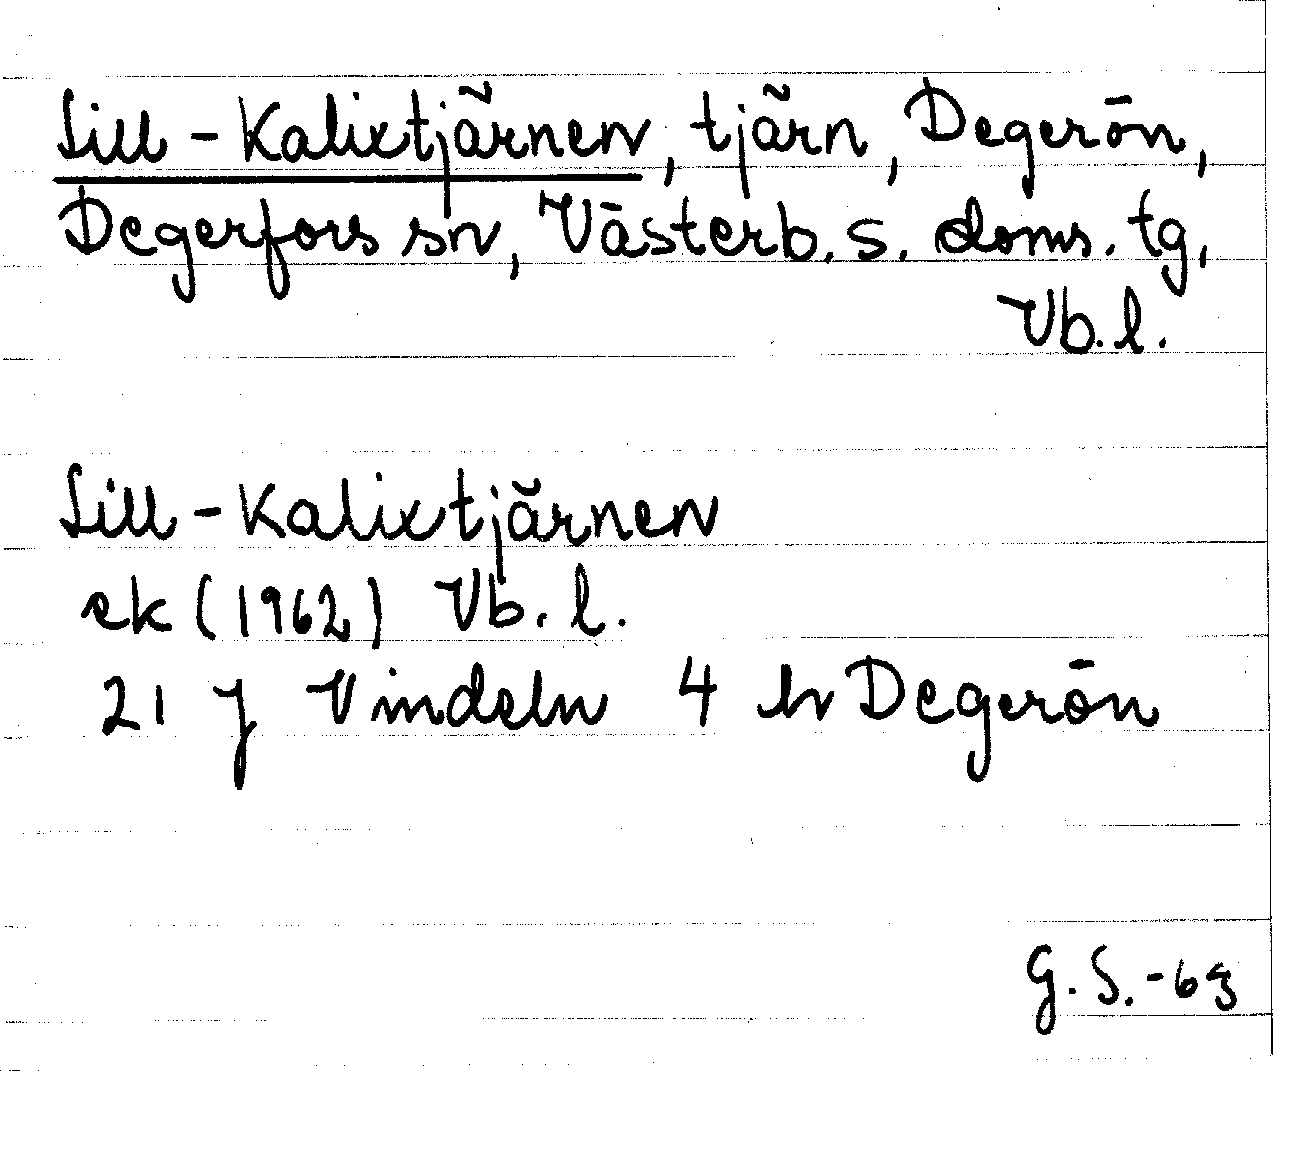 Lill-Kalixtjärnen, tjärn, Degerön,
Degerfors sn, Västerb. s. doms. tg,
Vb. l.
Lill-Kalixtjärnen
ek (1962) Vb. l.
21 J Vindeln 4 h Degerön
G. S. -63